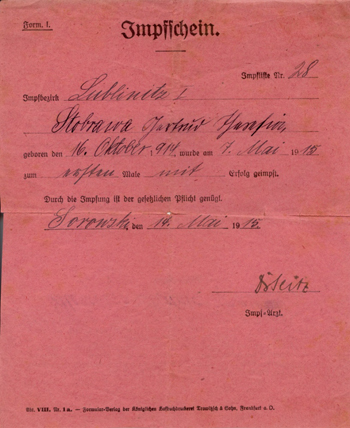 Form. I.
Impfschein.
Impfliste Nr. 28
Impfbezirk Lublinitz I
Stobrawa Gertrud
geboren den 16. Oktober 914, wurde am 7. Mai 1915
zum ersten Male mit Erfolg geimpft.
Durch die Impfung ist der gesetzlichen Pflicht genügt.
den 14. Mai 1915.
Impf-Arzt.
Bbl. VIII. Nr. 1a. — Formular-Verlag der Königlichen Hofbuchdruckerei Trowitzsch & Sohn, Frankfurt a. O.